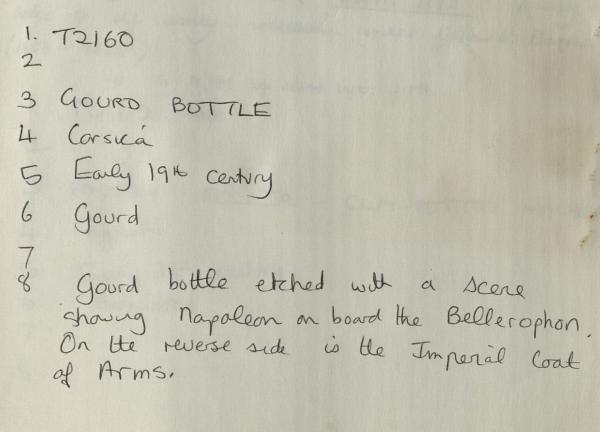 1. T2160
2
3 GOURD BOTTLE
4 Corsica
5 Early 19th century
6 Gourd
7
8 Gourd bottle etched with a scene
showing Napoleon on board the Bellerophon.
On the reverse side is the Imperial Coat
of Arms.